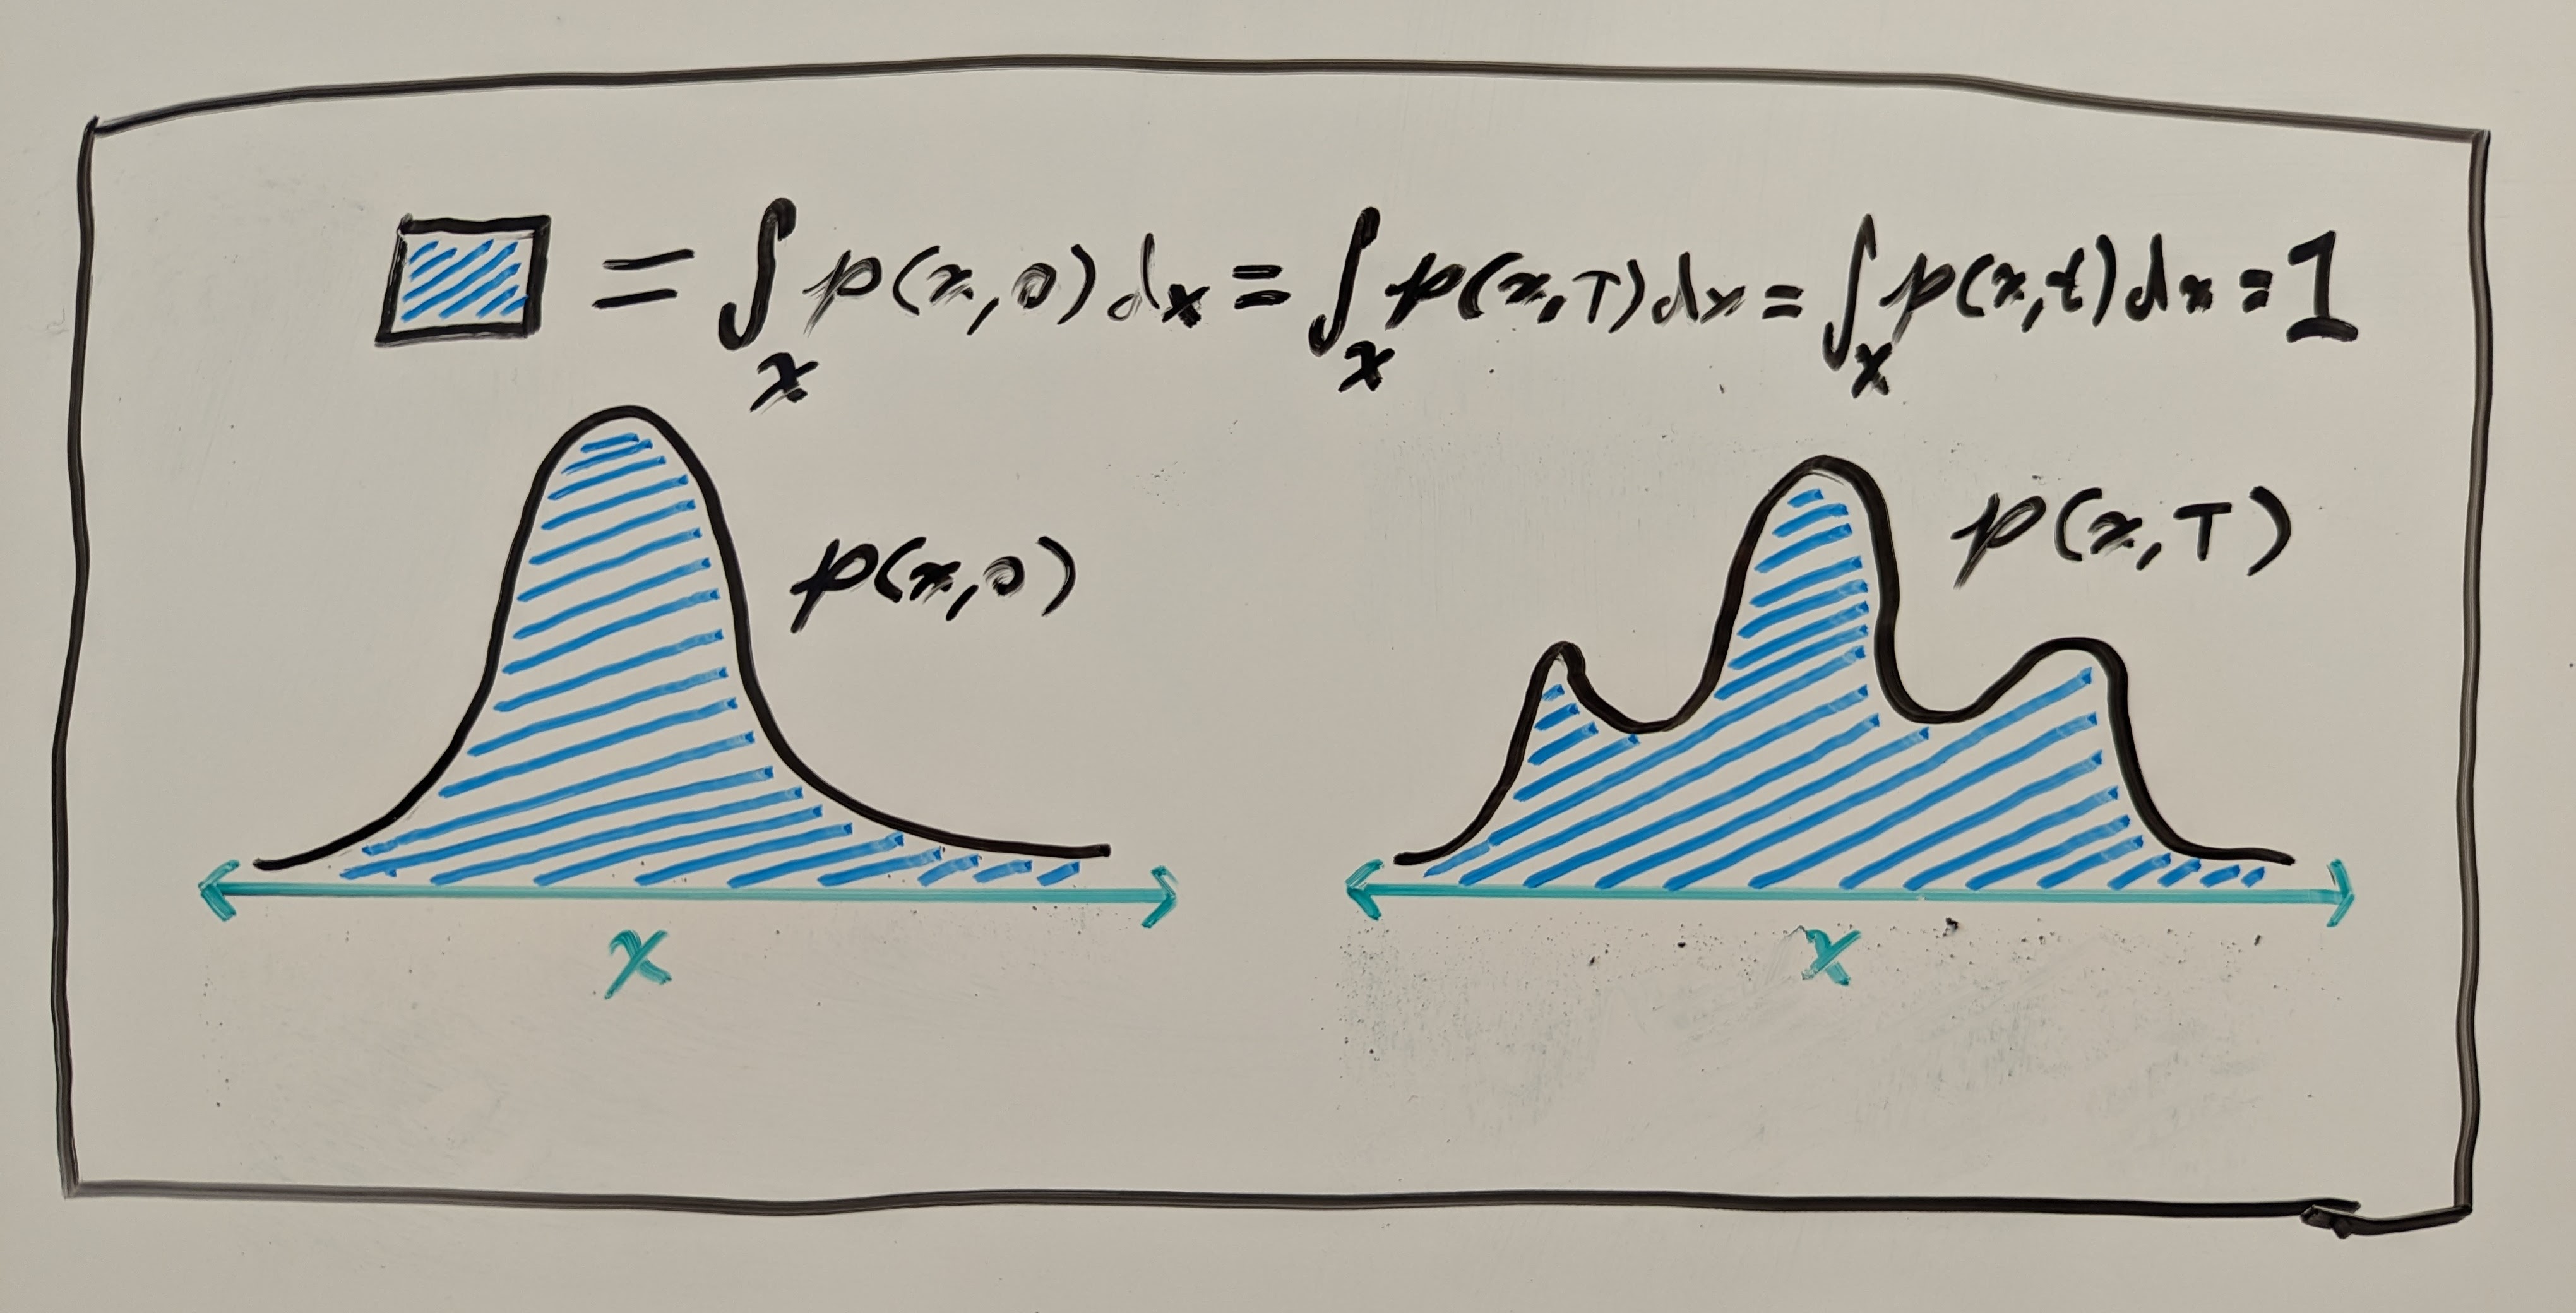 = ∫ₓ p(x,0)dx = ∫ₓ p(x,T)dx = ∫ₓ p(x,t)dx = 1
p(x,0)
p(x,T)
x
x